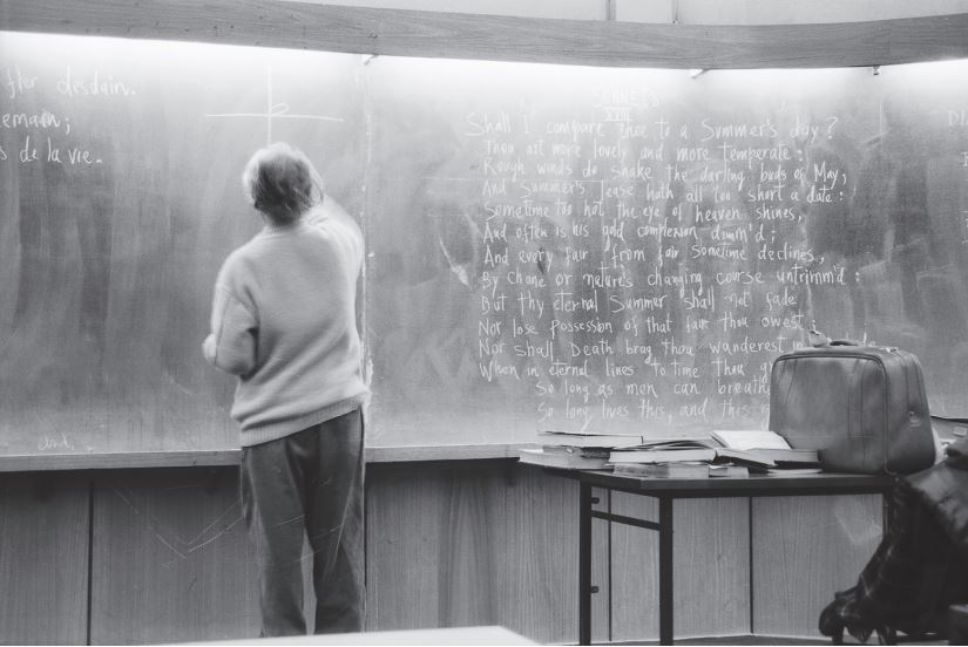 fler desdain.
emain;
s de la vie.
SONNETS
XVIII
Shall I compare thee to a Summer's day?
Thou art more lovely and more temperate:
Rough winds do shake the darling buds of May,
And Summer's lease hath all too short a date:
Sometime too hot the eye of heaven shines,
And often is his gold complexion dimm'd;
And every fair from fair sometime declines,
By chane or nature's changing course untrimm'd:
But thy eternal Summer shall not fade
Nor lose possession of that fair thou owest
Nor shall Death brag thou wanderest in
When in eternal lines to time thou g
So long as men can breathe
So long lives this, and this